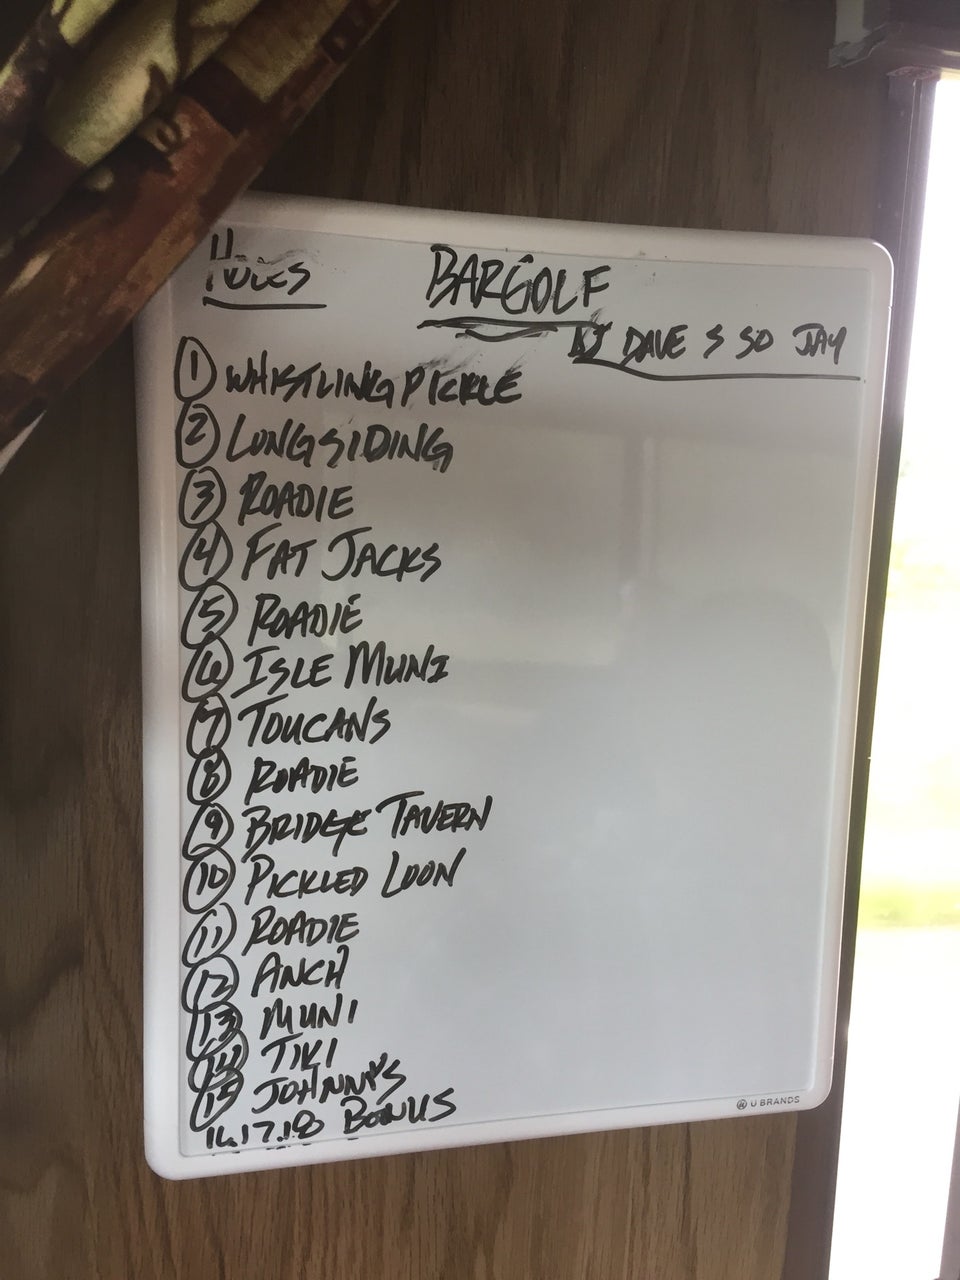 HOLES
BARGOLF
DJ DAVE $ SO JAY
1 WHISTLING PICKLE
2 LONGSIDING
3 ROADIE
4 FAT JACKS
5 ROADIE
6 ISLE MUNI
7 TOUCANS
8 ROADIE
9 BRIDGE TAVERN
10 PICKLED LOON
11 ROADIE
12 ANCH
13 MUNI
14 TIKI
15 JOHNNY'S
16.17.18 BONUS
U BRANDS